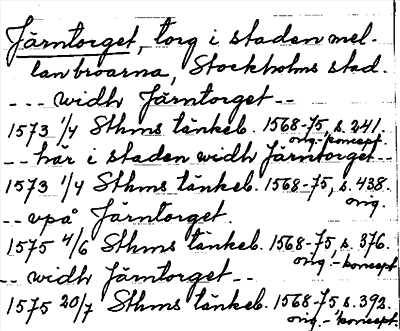 Järntorget, torg i staden mel-
lan broarna, Stockholms stad.
--- widh Järntorget --
1573 1/4 Sthms tänkeb. 1568-75, s. 241.
orig.-koncept.
-- här i staden widh Järntorget --
1573 1/4 Sthms tänkeb. 1568-75, s. 438.
orig.
-- vpå Järntorget.
1575 4/6 Sthms tänkeb. 1568-75 s. 376.
orig.-koncept
-- widh Järntorget --
1575 20/7 Sthms tänkeb. 1568-75 s. 392.
orig.-koncept.